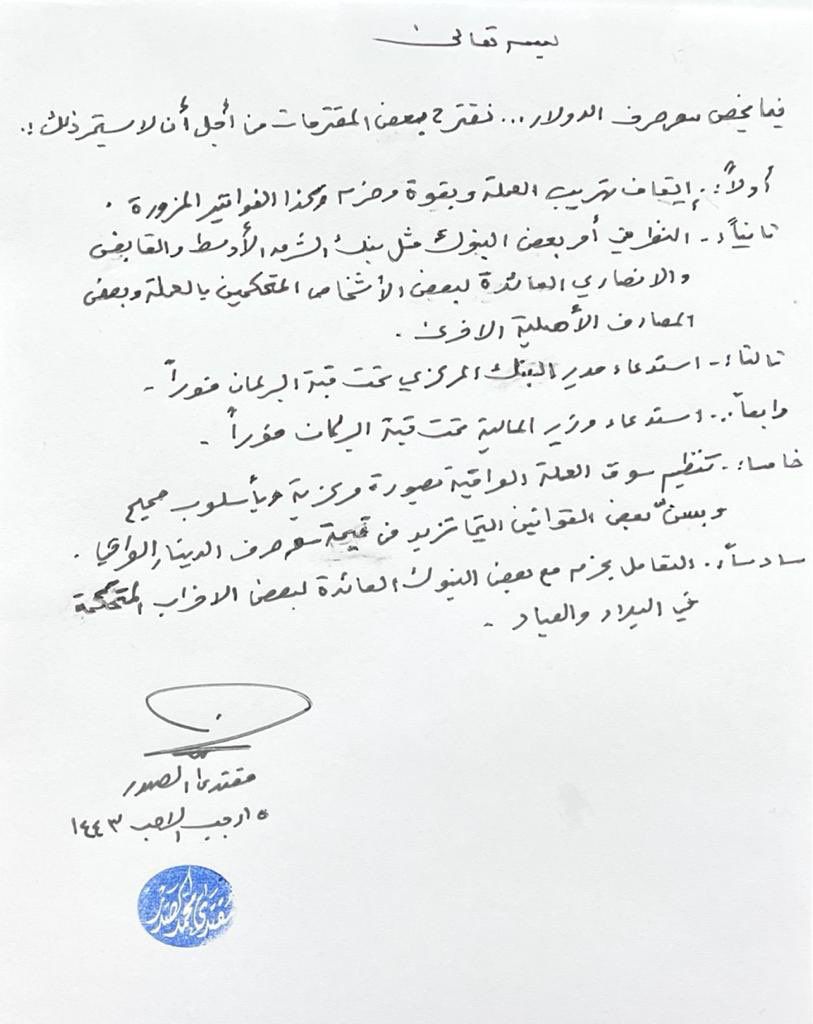 بسمه تعالى
فيما يخص سعر صرف الدولار... نقترح بعض المقترحات من أجل أن لا يستمر ذلك :.
أولاً:. إيقاف تهريب العملة وبقوة وحزم وكذا الفواتير المزورة .
ثانياً:- النظر في أمر بعض البنوك مثل بنك الشرق الأوسط والقابض
والانصاري العائدة لبعض الأشخاص المتحكمين بالعملة وبعض
المصارف الأهلية الاخرى .
ثالثاً:- استدعاء مدير البنك المركزي تحت قبة البرلمان فوراً -
رابعاً:. استدعاء وزير المالية تحت قبة البرلمان فوراً -
خامساً:. تنظيم سوق العملة العراقية بصورة مركزية وبأسلوب صحيح
وبسنّ بعض القوانين التي تزيد من قيمة سعر صرف الدينار العراقي .
سادساً:. التعامل بحزم مع بعض البنوك العائدة لبعض الاحزاب المتحكمة
في البلاد والعباد -
مقتدى الصدر
١٥ رجب الاصب ١٤٤٣
مقتدى محمد الصدر